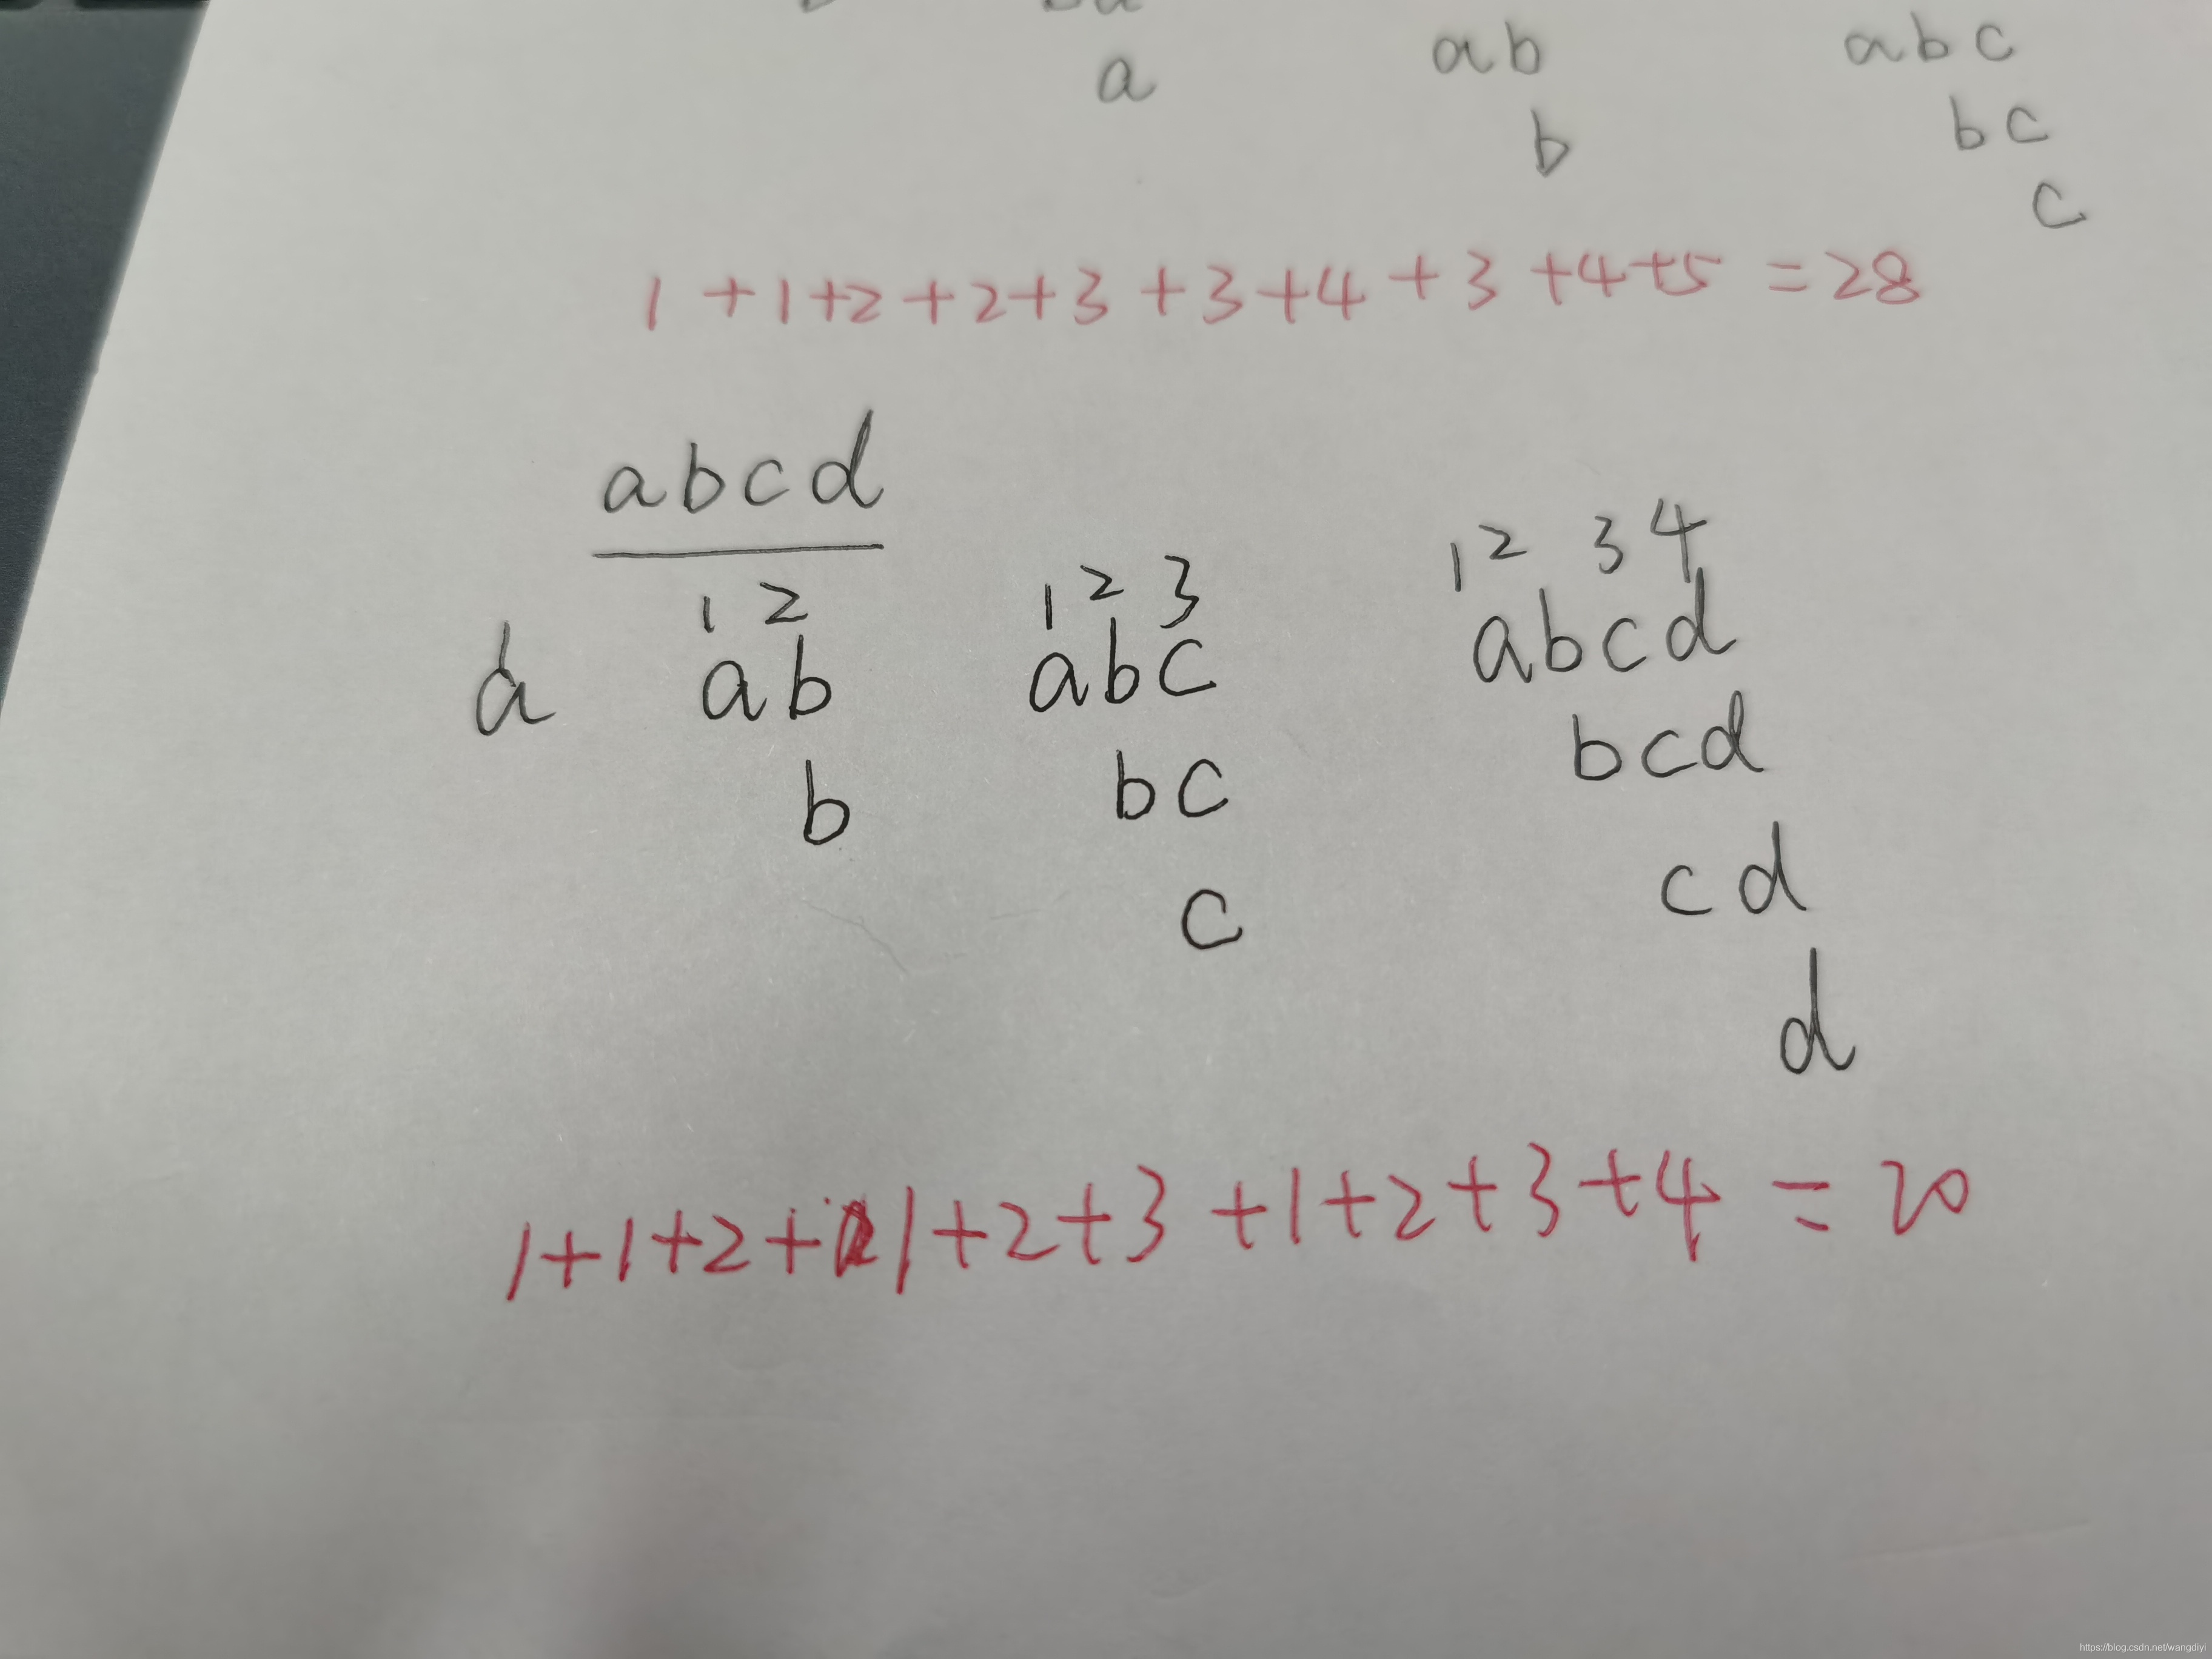 a ab abc
b bc
c
1 +1+2 +2+3 +3+4 +3 +4+5 =28
abcd
1 2 1 2 3 1 2 3 4
a ab abc abcd
b bc bcd
c cd
d
1+1+2+1+2+3+1+2+3+4=20
https://blog.csdn.net/wangdiyi